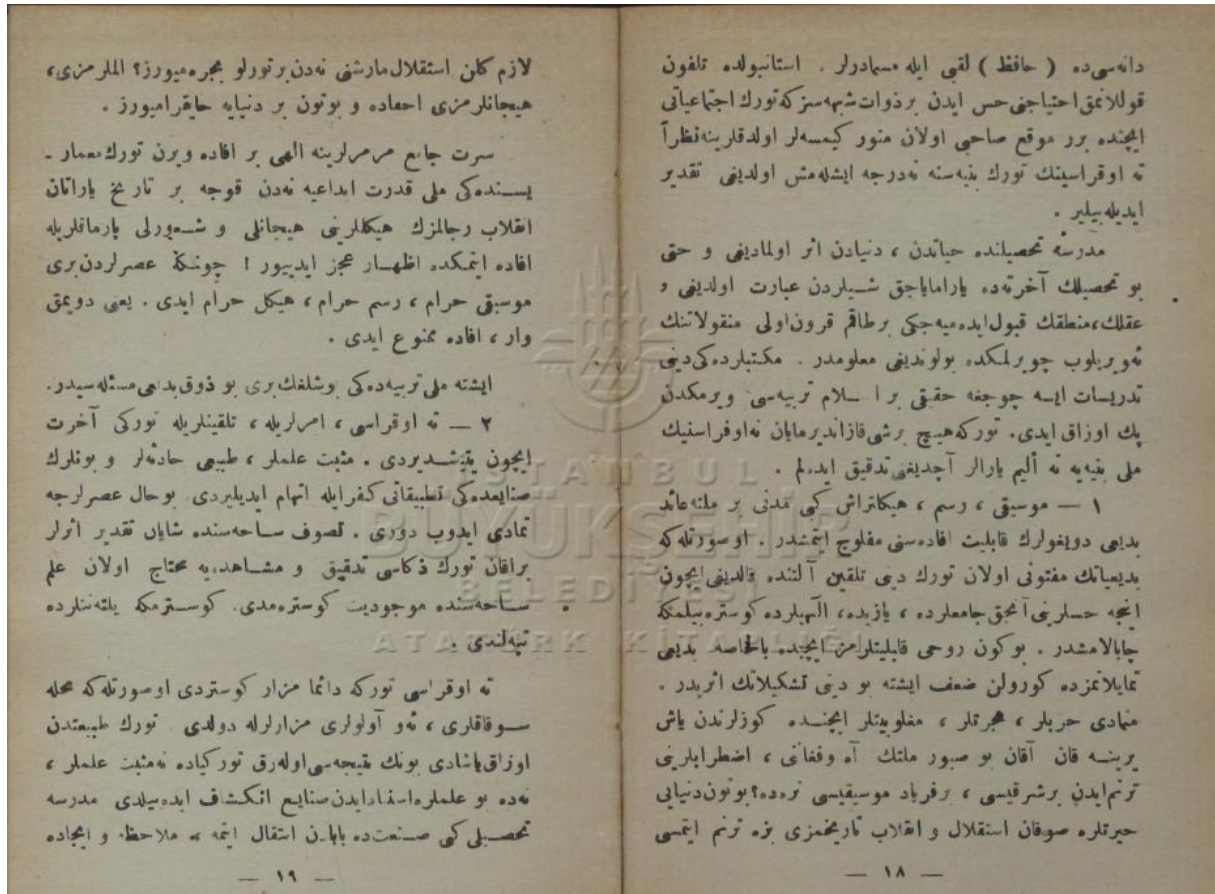 دانه‌سی‌ده ( حافظ ) لقبی ایله مسمادرلر . استانبولده تلفون
قوللانمق احتیاجنی حس ایدن بر ذوات شبهه‌سز که تورک اجتماعیاتی
ایچنده برر موقع صاحبی اولان منور کیمسه‌لر اولدقلرینه نظراً
ته اوقراسینك تورك بنیه‌سنه نه‌درجه ایشله‌مش اولدیغی تقدیر
ایدیله‌بیلیر .
مدرسه تحصیلنده حیاتدن ، دنیادن اثر اولمادیغی و حتی
بو تحصیلك آخرتده یارامایاجق شیلردن عبارت اولدیغی و
عقلك، منطقك قبول ایده‌میه‌جکی بر طاقم قرون اولی منقولاتنك
ئه‌ویریلوب چویرلمکده بولوندیغی معلومدر . مکتبلرده‌کی دینی
تدریسات ایسه چوجغه حقیقی بر اسلام تربیه‌سی ویرمکدن
پك اوزاق ایدی. تورکه هیچ برشی قازاندیرمایان ته‌اوقراسینك
ملی بنیه‌یه نه ألیم یارالر آچدیغنی تدقیق ایده‌لم .
۱ — موسیقی ، رسم ، هیکلتراش کبی مدنی بر ملته عائد
بدیعی دویغولرك قابلیت افاده‌سنی مفلوج ایتمشدر . او صورتله که
بدیعیاتك مفتونی اولان تورك دینی تلقین آلتنده قالدیغی ایچون
اینجه حسلرینی آنجق جامعلرده ، یازیده ، الٓهیلرده کوستره‌بیلمکه
چابالامشدر . بوکون روحی قابلیتلرمز ایچنده بالخاصه بدیعی
تمایلاتمزده کورولن ضعف ایشته بو دینی تشکیلاتك اثریدر .
متمادی حربلر ، هجرتلر ، مغلوبیتلر ایچنده کوزلرندن یاش
یرینه قان آقان بو صبور ملتك آه وفغانی ، اضطرابلرینی
ترنم ایدن بر شرقیسی ، بر فریاد موسیقیسی نره‌ده؟ بوتون دنیایی
حیرتلره صوقان استقلال و انقلاب تاریخمزی بزه ترنم ایتمسی
— ۱۸ —
لازم کلن استقلال مارشنی نه‌دن بر تورلو بجره‌میورز؟ الملرمزی،
هیجانلرمزی افاده و بوتون بر دنیایه حایقرامیورز .
سرت جامع مرمرلرینه الهی بر افاده ویرن تورك معمار ـ
یسنده‌کی ملی قدرت ابداعیه نه‌دن قوجه بر تاریخ یاراتان
انقلاب رجالمزك هیکللرینی هیجانلی و شعورلی پارماقلریله
افاده ایتمکده اظهار عجز ایدییور ! چونکه عصرلردن بری
موسیقی حرام ، رسم حرام ، هیکل حرام ایدی . یعنی دویمق
وار ، افاده ممنوع ایدی .
ایشته ملی تربیه‌ده‌کی بوشلغك بری بو ذوق بدیعی مسئله‌سیدر.
۲ — ته اوقراسی ، امرلریله ، تلقینلریله تورکی آخرت
ایچون یتیشدیردی . مثبت علملر ، طبیعی حادثه‌لر و بونلرك
صنایعده‌کی تطبیقاتی کفر ایله اتهام ایدیلیردی . بو حال عصرلرجه
تمادی ایدوب دوردی . تصوف ساحه‌سنده شایان تقدیر اثرلر
براقان تورك ذکاسی تدقیق و مشاهده‌یه محتاج اولان علم
ساحه‌سنده موجودیت کوستره‌مدی. کوسترمکه یلته‌ننلرده
تپه‌لندی .
ته اوقراسی تورکه دائما مزار کوستردی اوصورتله که محله
سوقاقلری ، ئه‌و آولولری مزارلرله دولدی . تورك طبیعتدن
اوزاق یاشادی بونك نتیجه‌سی اوله‌رق تورکیاده نه مثبت علملر ،
نه‌ده بو علملره استناد ایدن صنایع انکشاف ایده‌بیلدی مدرسه
تحصیلی کبی صنعت‌ده بابادن انتقال ایتمه ملاحظه و ایجاده
— ۱۹ —
ISTANBUL
BÜYÜKŞEHİR
BELEDİYESİ
ATATÜRK KİTAPLIĞI